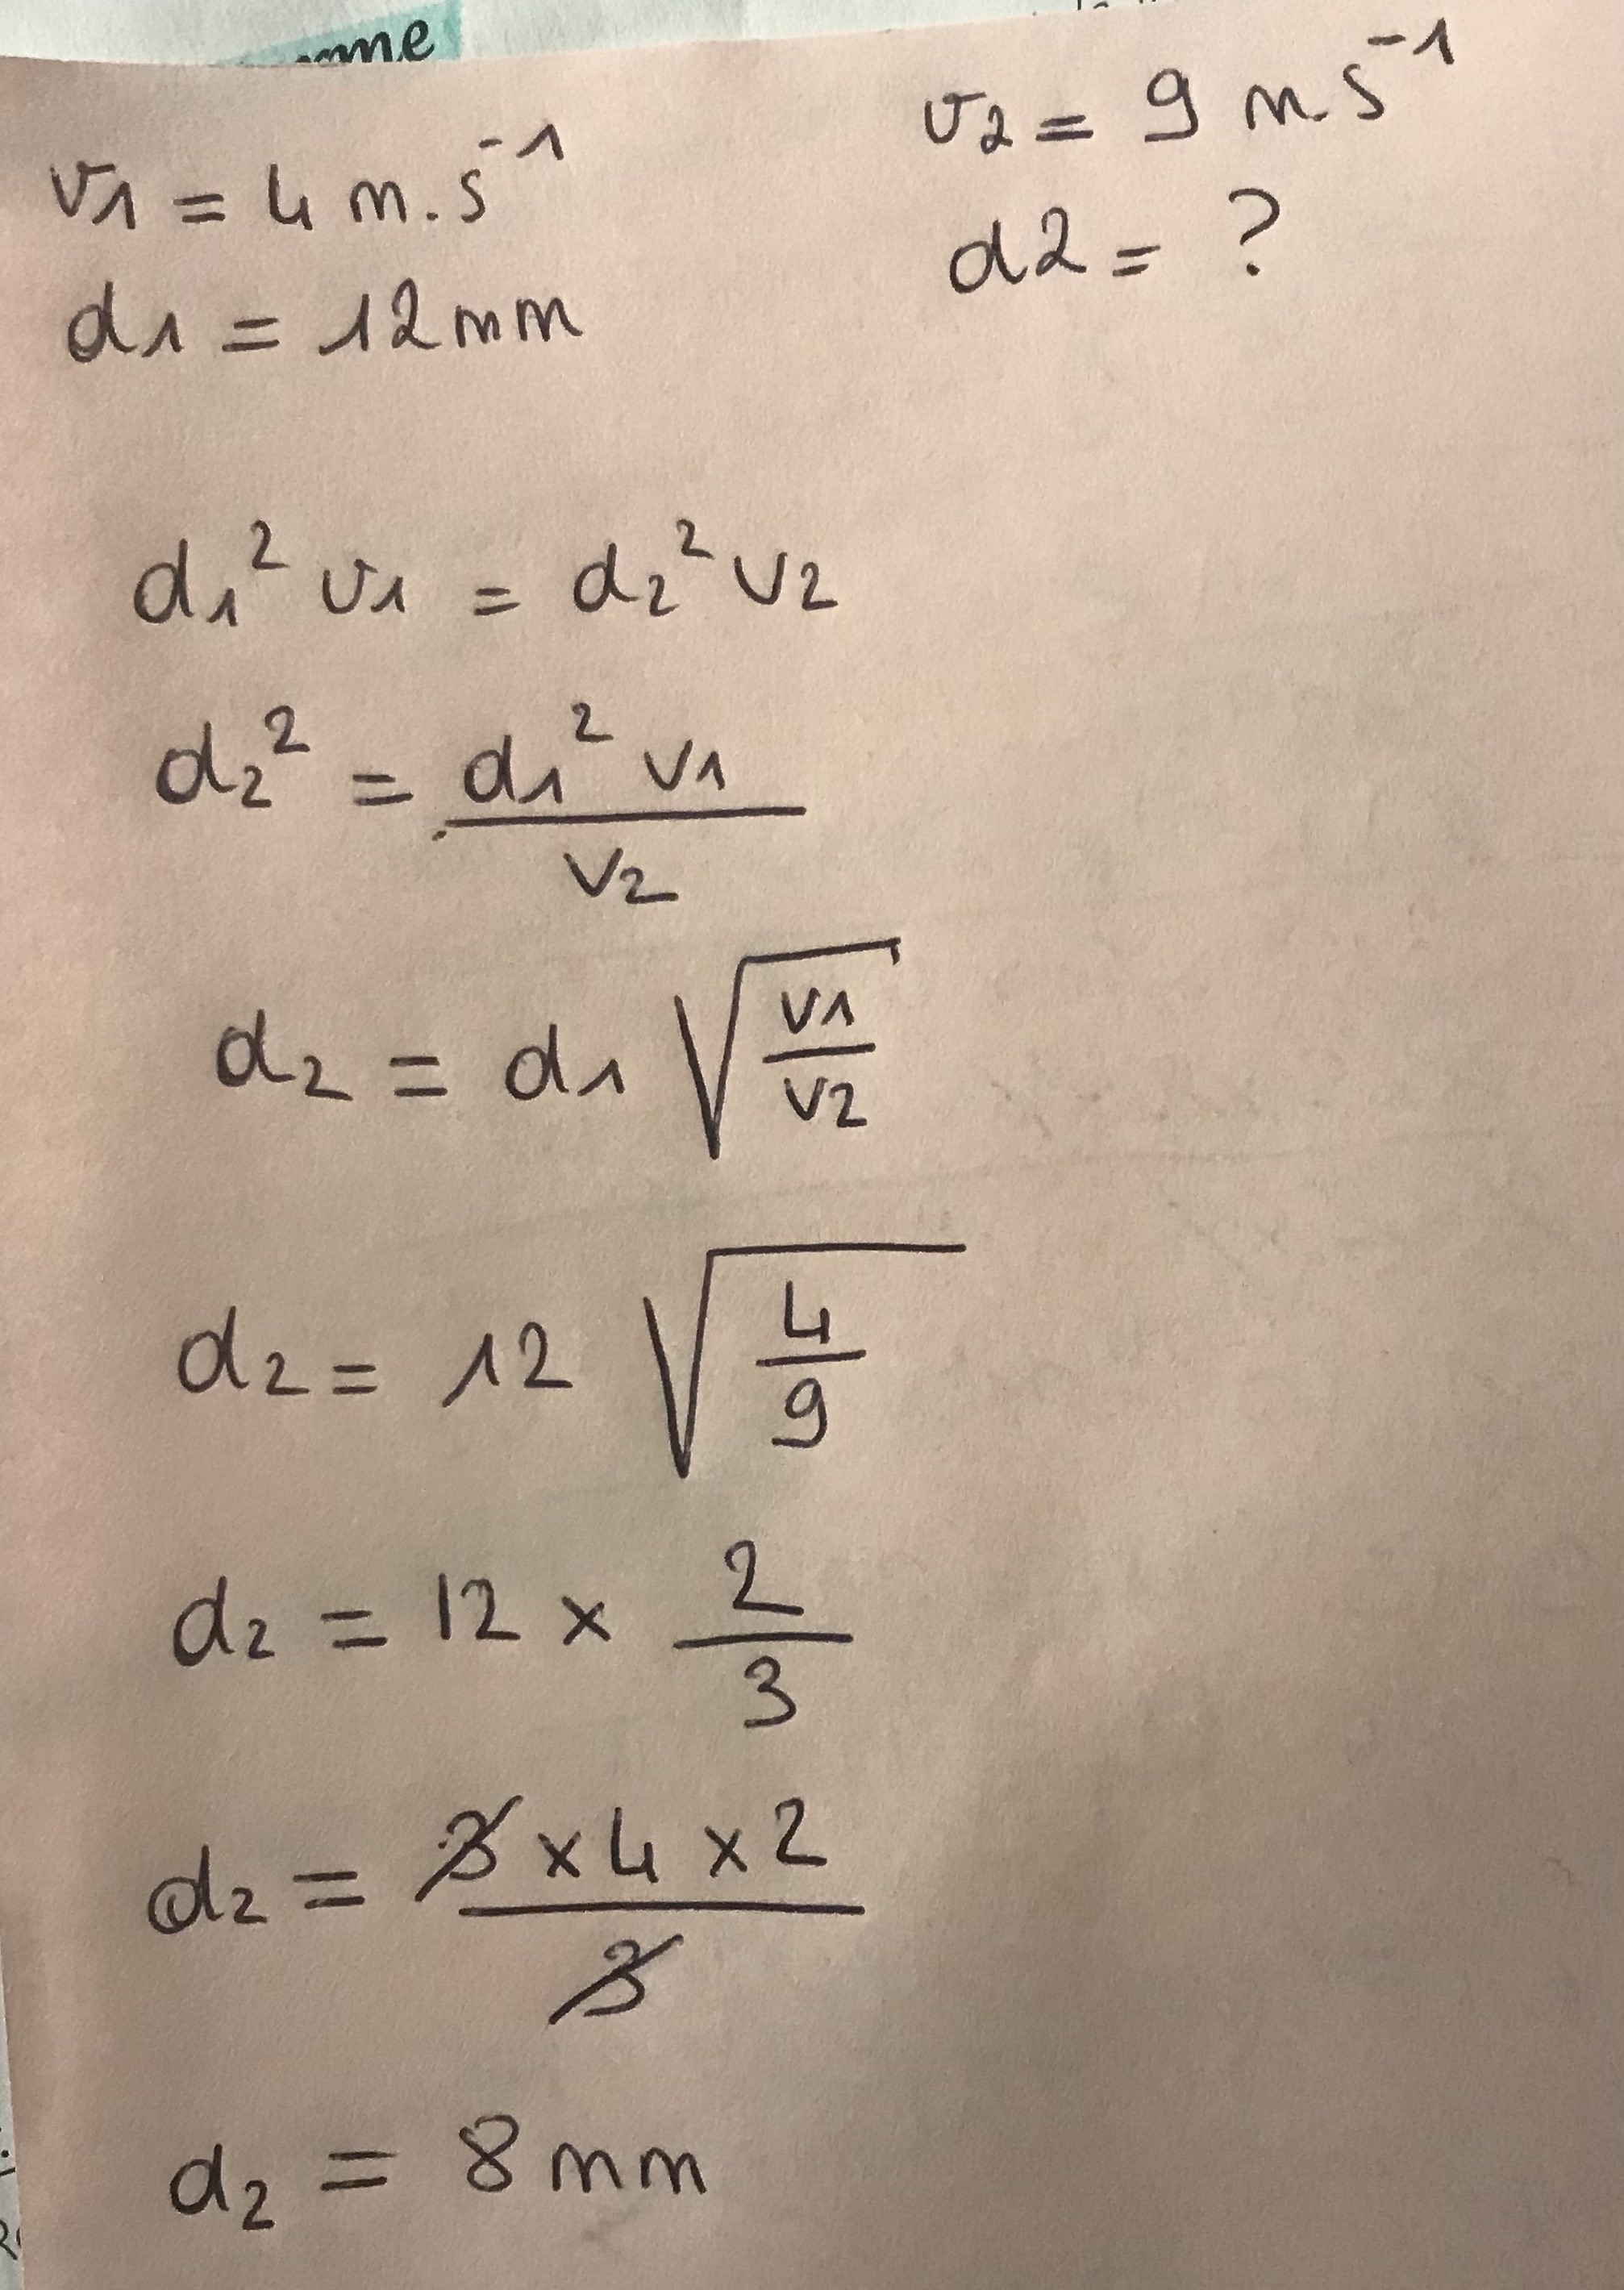 v1 = 4 m.s⁻¹
d1 = 12mm
v2 = 9 m.s⁻¹
d2 = ?
d₁² v1 = d₂² v2
d₂² = d₁² v1 / v2
d₂ = d₁ √(v1/v2)
d₂ = 12 √(4/9)
d₂ = 12 × 2/3
d₂ = 3 × 4 × 2 / 3
d₂ = 8 mm